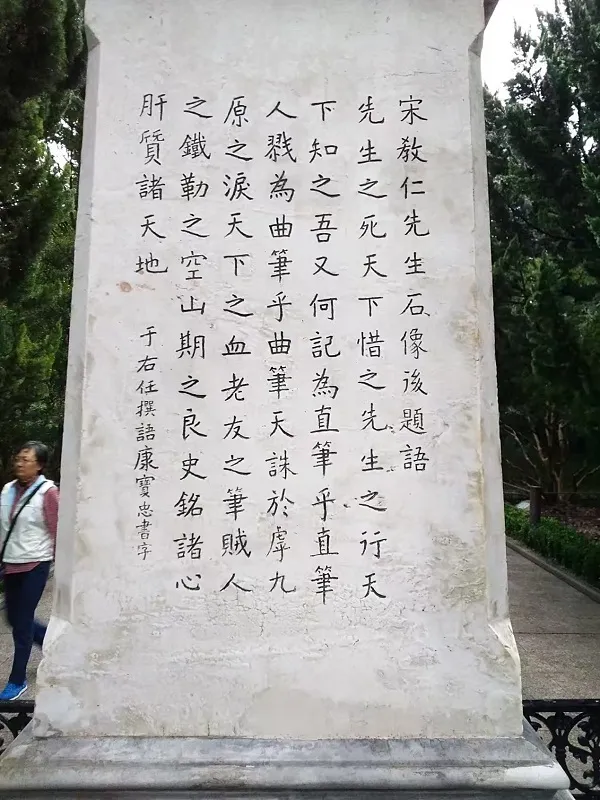 宋教仁先生石像後題語
先生之死天下惜之先生之行天
下知之吾又何記為直筆乎直筆
人戮為曲筆乎曲筆天誅於虖九
原之淚天下之血老友之筆賊人
之鐵勒之空山期之良史銘諸心
肝質諸天地
于右任撰語康寶忠書字